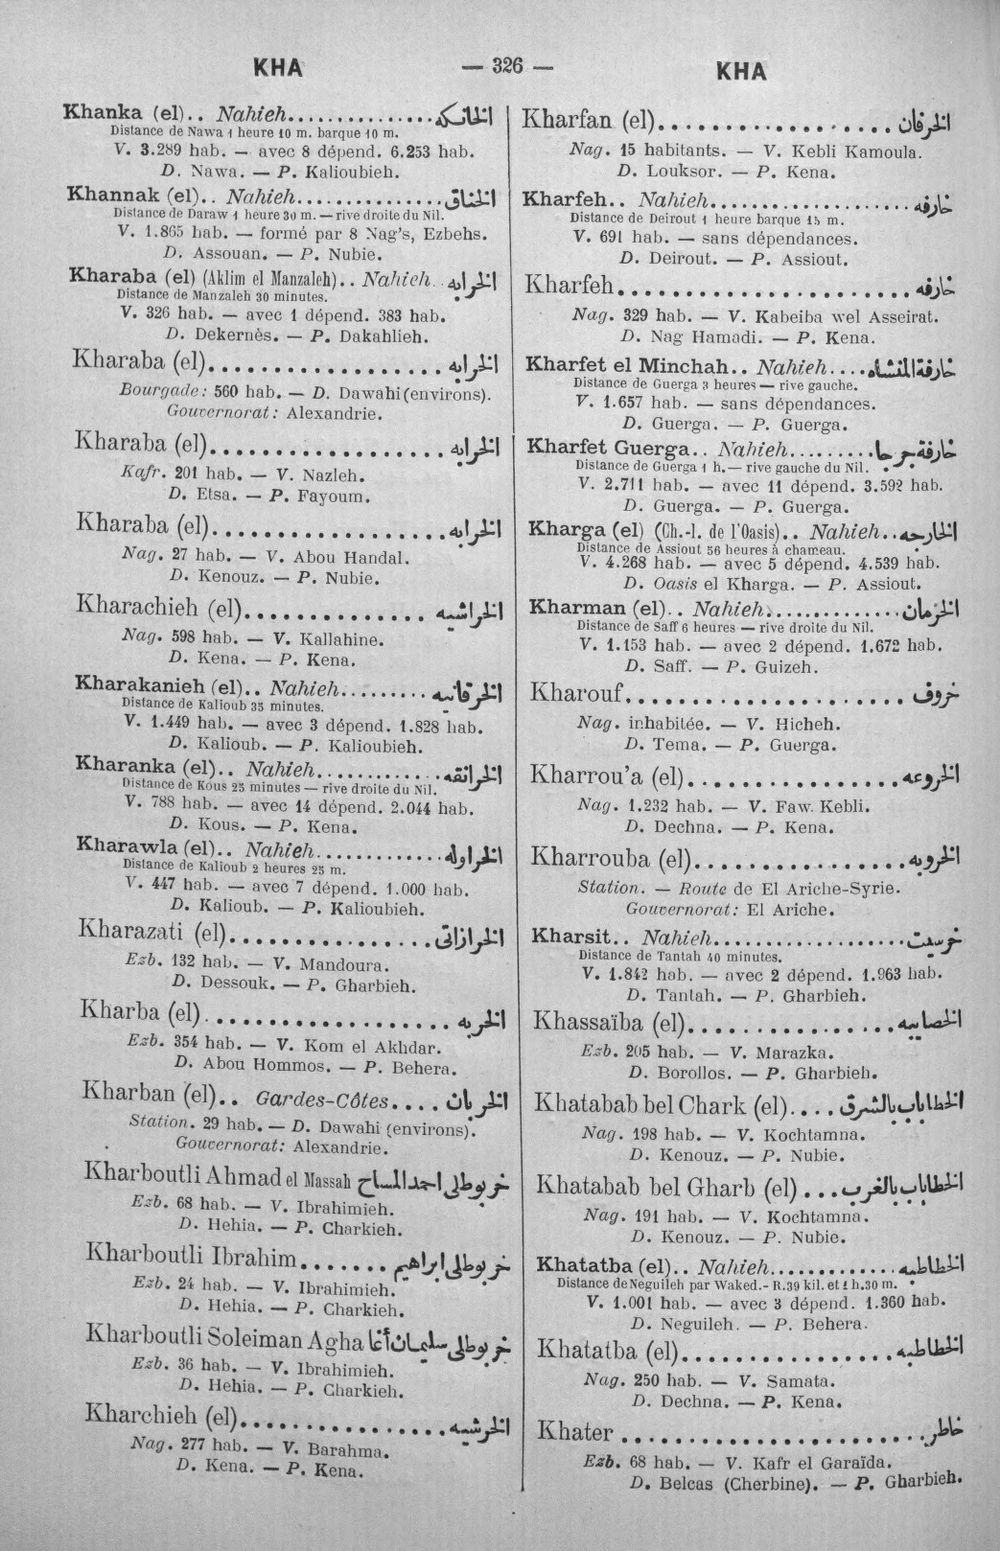 KHA — 326 — KHA
Khanka (el).. Nahieh.................الخانكه
Distance de Nawa 1 heure 10 m. barque 10 m.
V. 3.289 hab. — avec 8 dépend. 6.253 hab.
D. Nawa. — P. Kalioubieh.
Khannak (el).. Nahieh.................الخناق
Distance de Daraw 1 heure 30 m. — rive droite du Nil.
V. 1.865 hab. — formé par 8 Nag's, Ezbehs.
D. Assouan. — P. Nubie.
Kharaba (el) (Aklim el Manzaleh).. Nahieh..الخرابه
Distance de Manzaleh 30 minutes.
V. 326 hab. — avec 1 dépend. 383 hab.
D. Dekernès. — P. Dakahlieh.
Kharaba (el)..................الخرابه
Bourgade: 560 hab. — D. Dawahi(environs).
Gouvernorat: Alexandrie.
Kharaba (el)..................الخرابه
Kafr. 201 hab. — V. Nazleh.
D. Etsa. — P. Fayoum.
Kharaba (el)..................الخرابه
Nag. 27 hab. — V. Abou Handal.
D. Kenouz. — P. Nubie.
Kharachieh (el)..............الخراشيه
Nag. 598 hab. — V. Kallahine.
D. Kena. — P. Kena.
Kharakanieh (el).. Nahieh.........الخرقانيه
Distance de Kalioub 35 minutes.
V. 1.449 hab. — avec 3 dépend. 1.828 hab.
D. Kalioub. — P. Kalioubieh.
Kharanka (el).. Nahieh.............الخرانقه
Distance de Kous 25 minutes — rive droite du Nil.
V. 788 hab. — avec 14 dépend. 2.044 hab.
D. Kous. — P. Kena.
Kharawla (el).. Nahieh.............الخراوله
Distance de Kalioub 2 heures 25 m.
V. 447 hab. — avec 7 dépend. 1.000 hab.
D. Kalioub. — P. Kalioubieh.
Kharazati (el)................الخرازاتى
Ezb. 132 hab. — V. Mandoura.
D. Dessouk. — P. Gharbieh.
Kharba (el)...................الخربه
Ezb. 354 hab. — V. Kom el Akhdar.
D. Abou Hommos. — P. Behera.
Kharban (el).. Gardes-Côtes....الخربان
Station. 29 hab. — D. Dawahi (environs).
Gouvernorat: Alexandrie.
Kharboutli Ahmad el Massah خربوطلى احمد المساح
Ezb. 68 hab. — V. Ibrahimieh.
D. Hehia. — P. Charkieh.
Kharboutli Ibrahim.......خربوطلى ابراهيم
Ezb. 24 hab. — V. Ibrahimieh.
D. Hehia. — P. Charkieh.
Kharboutli Soleiman Agha خربوطلى سليمان أغا
Ezb. 36 hab. — V. Ibrahimieh.
D. Hehia. — P. Charkieh.
Kharchieh (el)................الخرشيه
Nag. 277 hab. — V. Barahma.
D. Kena. — P. Kena.
Kharfan (el)..................الخرفان
Nag. 15 habitants. — V. Kebli Kamoula.
D. Louksor. — P. Kena.
Kharfeh.. Nahieh....................خارفه
Distance de Deirout 1 heure barque 15 m.
V. 691 hab. — sans dépendances.
D. Deirout. — P. Assiout.
Kharfeh......................خارفه
Nag. 329 hab. — V. Kabeiba wel Asseirat.
D. Nag Hamadi. — P. Kena.
Kharfet el Minchah.. Nahieh....خارفة المنشاه
Distance de Guerga 3 heures — rive gauche.
V. 1.657 hab. — sans dépendances.
D. Guerga. — P. Guerga.
Kharfet Guerga.. Nahieh.........خارفة جرجا
Distance de Guerga 1 h. — rive gauche du Nil.
V. 2.711 hab. — avec 11 dépend. 3.592 hab.
D. Guerga. — P. Guerga.
Kharga (el) (Ch.-l. de l'Oasis).. Nahieh..الخارجه
Distance de Assiout 56 heures à chameau.
V. 4.268 hab. — avec 5 dépend. 4.539 hab.
D. Oasis el Kharga. — P. Assiout.
Kharman (el).. Nahieh..............الخرمان
Distance de Saff 6 heures — rive droite du Nil.
V. 1.153 hab. — avec 2 dépend. 1.672 hab.
D. Saff. — P. Guizeh.
Kharouf.....................خروف
Nag. inhabitée. — V. Hicheh.
D. Tema. — P. Guerga.
Kharrou'a (el)................الخروعه
Nag. 1.232 hab. — V. Faw Kebli.
D. Dechna. — P. Kena.
Kharrouba (el)................الخروبه
Station. — Route de El Ariche-Syrie.
Gouvernorat: El Ariche.
Kharsit.. Nahieh....................خرسيت
Distance de Tantah 40 minutes.
V. 1.842 hab. — avec 2 dépend. 1.963 hab.
D. Tantah. — P. Gharbieh.
Khassaïba (el)................الخصايبه
Ezb. 205 hab. — V. Marazka.
D. Borollos. — P. Gharbieh.
Khatabab bel Chark (el)....الخطاباب بالشرق
Nag. 198 hab. — V. Kochtamna.
D. Kenouz. — P. Nubie.
Khatabab bel Gharb (el)...الخطاباب بالغرب
Nag. 191 hab. — V. Kochtamna.
D. Kenouz. — P. Nubie.
Khatatba (el).. Nahieh.............الخطاطبه
Distance de Neguileh par Waked.- R.39 kil. et 1 h.30 m.
V. 1.001 hab. — avec 3 dépend. 1.360 hab.
D. Neguileh. — P. Behera.
Khatatba (el)................الخطاطبه
Nag. 250 hab. — V. Samata.
D. Dechna. — P. Kena.
Khater.......................خاطر
Ezb. 68 hab. — V. Kafr el Garaïda.
D. Belcas (Cherbine). — P. Gharbieh.